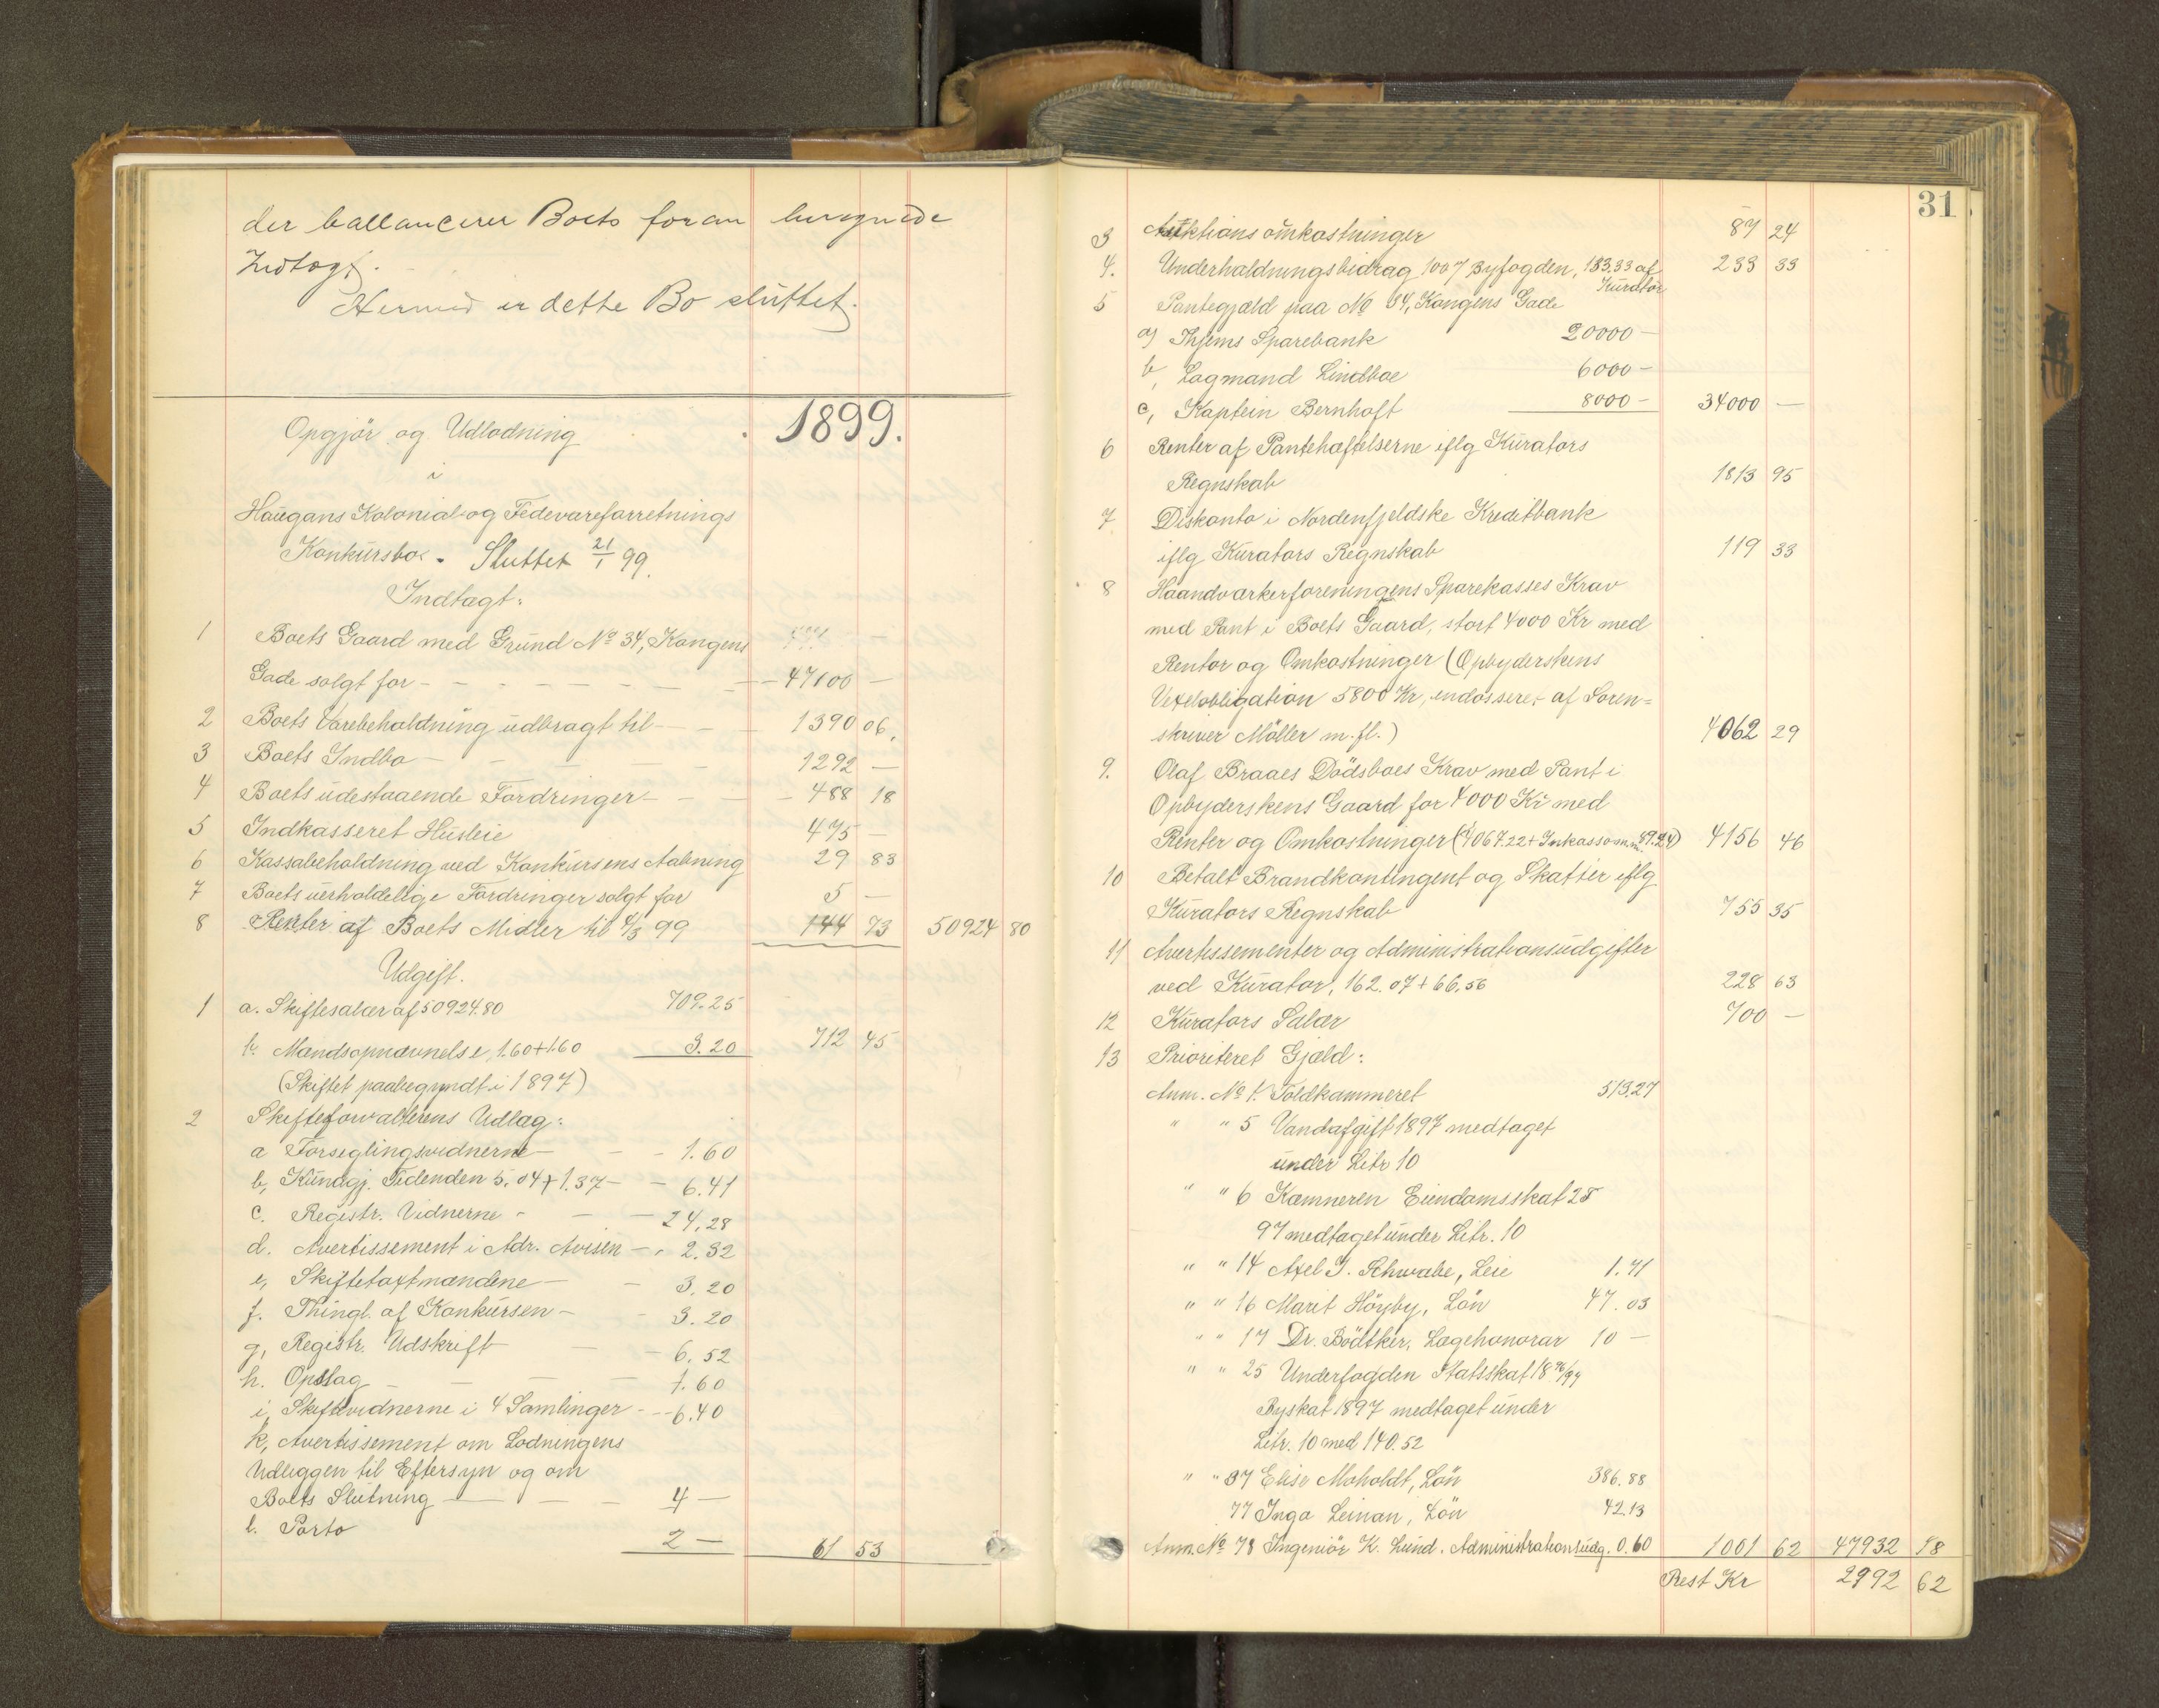 der ballancerer Boets foran beregnede
Indtægt.
Hermed er dette Bo sluttet.
Opgjör og Udlodning 1899.
i
Haugans Kolonial- og Fedevareforretnings
Konkursbo. Sluttet 21/1 99.
Indtægt:
1 Boets Gaard med Grund No 34, Kongens
Gade solgt for - 47100 -
2 Boets Varebeholdning udbragt til - 1390 06.
3 Boets Indbo - 1292 -
4 Boets udestaaende Fordringer - 488 18
5 Indkasseret Husleie 475 -
6 Kassabeholdning ved Konkursens Aabning 29 83
7 Boets uerholdelige Fordringer solgt for 5 -
8 Renter af Boets Midler til 4/3 99 144 73 50924 80
Udgift.
1 a. Skiftesalær af 50924.80 709.25
b. Mandsopnævnelse, 1.60+1.60 3.20 712 45
(Skiftet paabegyndt i 1897)
2 Skifteforvalterens Udlæg:
a Forseglingsvidnerne - 1.60
b, Kundgj. Tidenden 5.04+1.37 - 6.41
c. Registr. Vidnerne - 24.28
d. Avertissement i Adr. Avisen - 2.32
e, Skiftetaxtmændene - 3.20
f. Thingl. af Konkursen - 3.20
g, Registr. Udskrift - 6.52
h. Opslag - 1.60
i, Skiftevidnerne i 4 Samlinger - 6.40
k, Avertissement om Lodningens
Udlæggen til Eftersyn og om
Boets Slutning - 4 -
l. Porto 2 - 61 53
31
3 Auktionsomkostninger 87 24
4. Underholdningsbidrag 100 7 Byfogden, 133.33 af 233 33
Kurator
5 Pantegjæld paa No 34, Kongens Gade
a) Thjems Sparebank 20000 -
b, Lagmand Lindboe 6000 -
c, Kaptein Bernhoft 8000 - 34000 -
6 Renter af Pantehæftelserne iflg Kurators
Regnskab 1813 95
7 Diskonto i Nordenfjeldske Kreditbank
iflg Kurators Regnskab 119 33
8 Haandværkerforeningens Sparekasses Krav
med Pant i Boets Gaard, stort 4000 Kr med
Renter og Omkostninger (Opbyderskens
Vexelobligation 5800 Kr, endosseret af Soren=
skriver Möller m. fl.) 4062 29
9. Olaf Braaes Dödsboes Krav med Pant i
Opbyderskens Gaard for 4000 Kr med
Renter og Omkostninger (4067.22 + Inkasso m.m. 89.24) 4156 46
10 Betalt Brandkontingent og Skatter iflg
Kurators Regnskab 755 35
11 Avertissementer og Administrationsudgifter
ved Kurator, 162.07 + 66.56 228 63
12 Kurators Salær 700 -
13 Prioriteret Gjæld:
Anm. No 1. Toldkammeret 513.27
" " 5 Vandafgift 1897 medtaget
under Litr 10
" " 6 Kæmneren Eiendomsskat 2 T
97 medtaget under Litr. 10
" " 14 Axel J. Schwabe, Leie 1.71
" " 16 Marit Höyby, Lön 47.03
" " 17 Dr. Bödtker, Lægehonorar 10 -
" " 25 Underfogden Statsskat 18 96/97
Byskat 1897 medtaget under
Litr. 10 med 140.52
" " 37 Elise Moholdt, Lön 386.88
77 Inga Leinan, Lön 42.13
Anm. No 78 Ingeniör K. Lund. Administrationsudg. 0.60 1001 62 47932 18
Rest Kr 2992 62